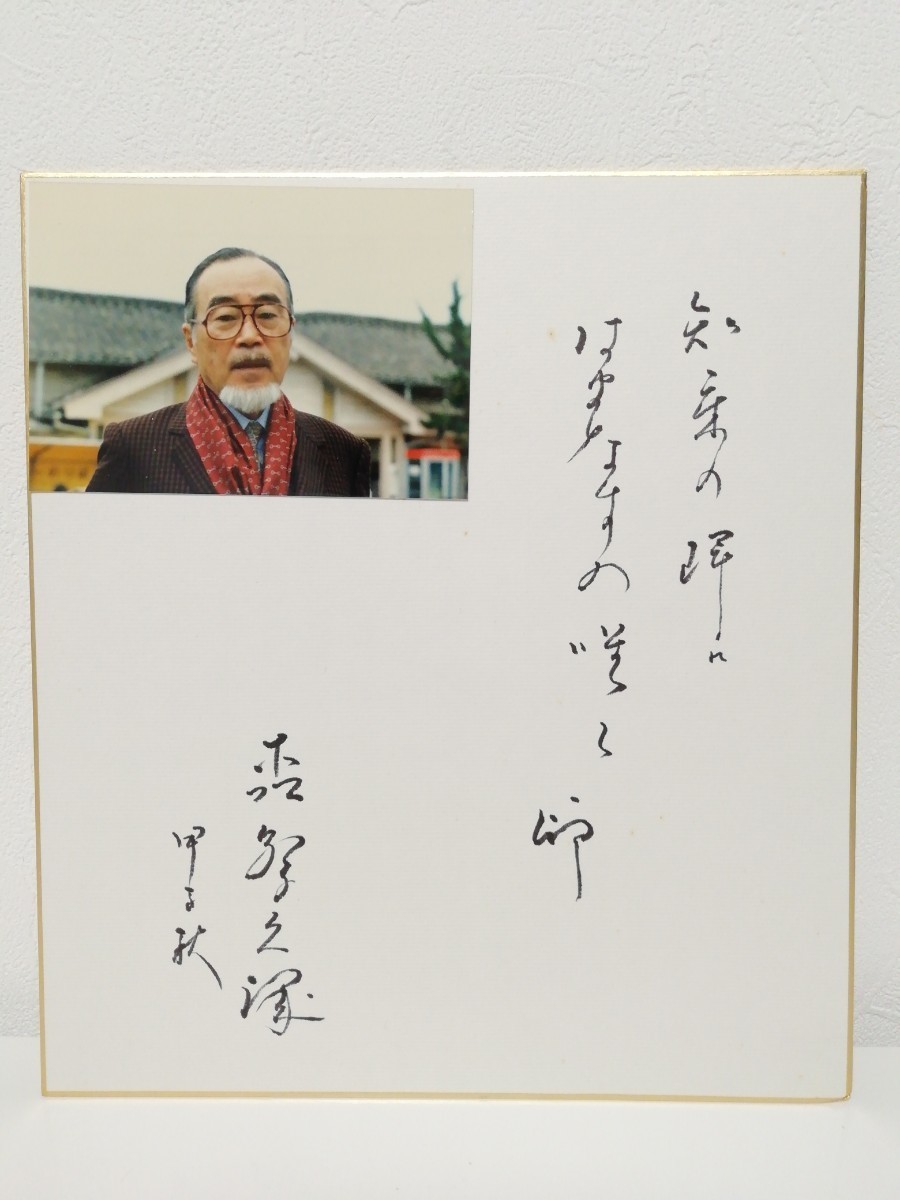 知床の岬に
はまなすの咲く頃
森繁久彌
甲子秋